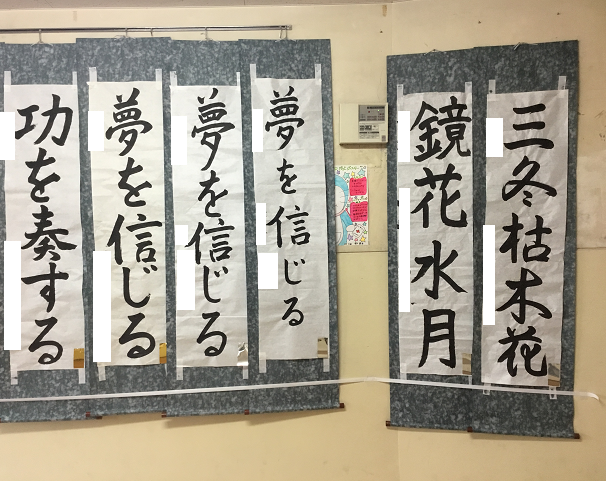 三冬枯木花
鏡花水月
夢を信じる
夢を信じる
夢を信じる
功を奏する